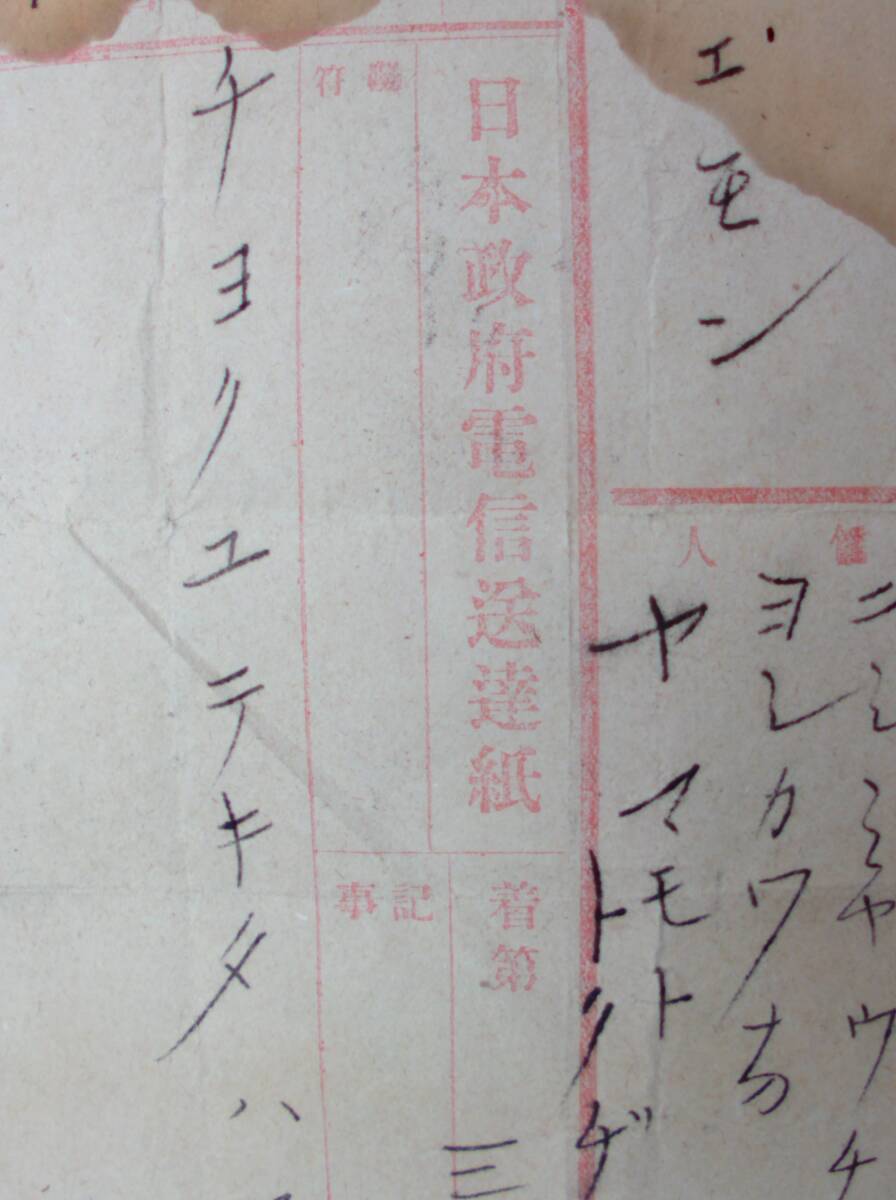 ニシミヤウチ
ヨシカワ方
ヤマモト
トクゲ
エモン
人
日本政府電信送達紙
着第
三
記事
符
チヨクユテキタハ